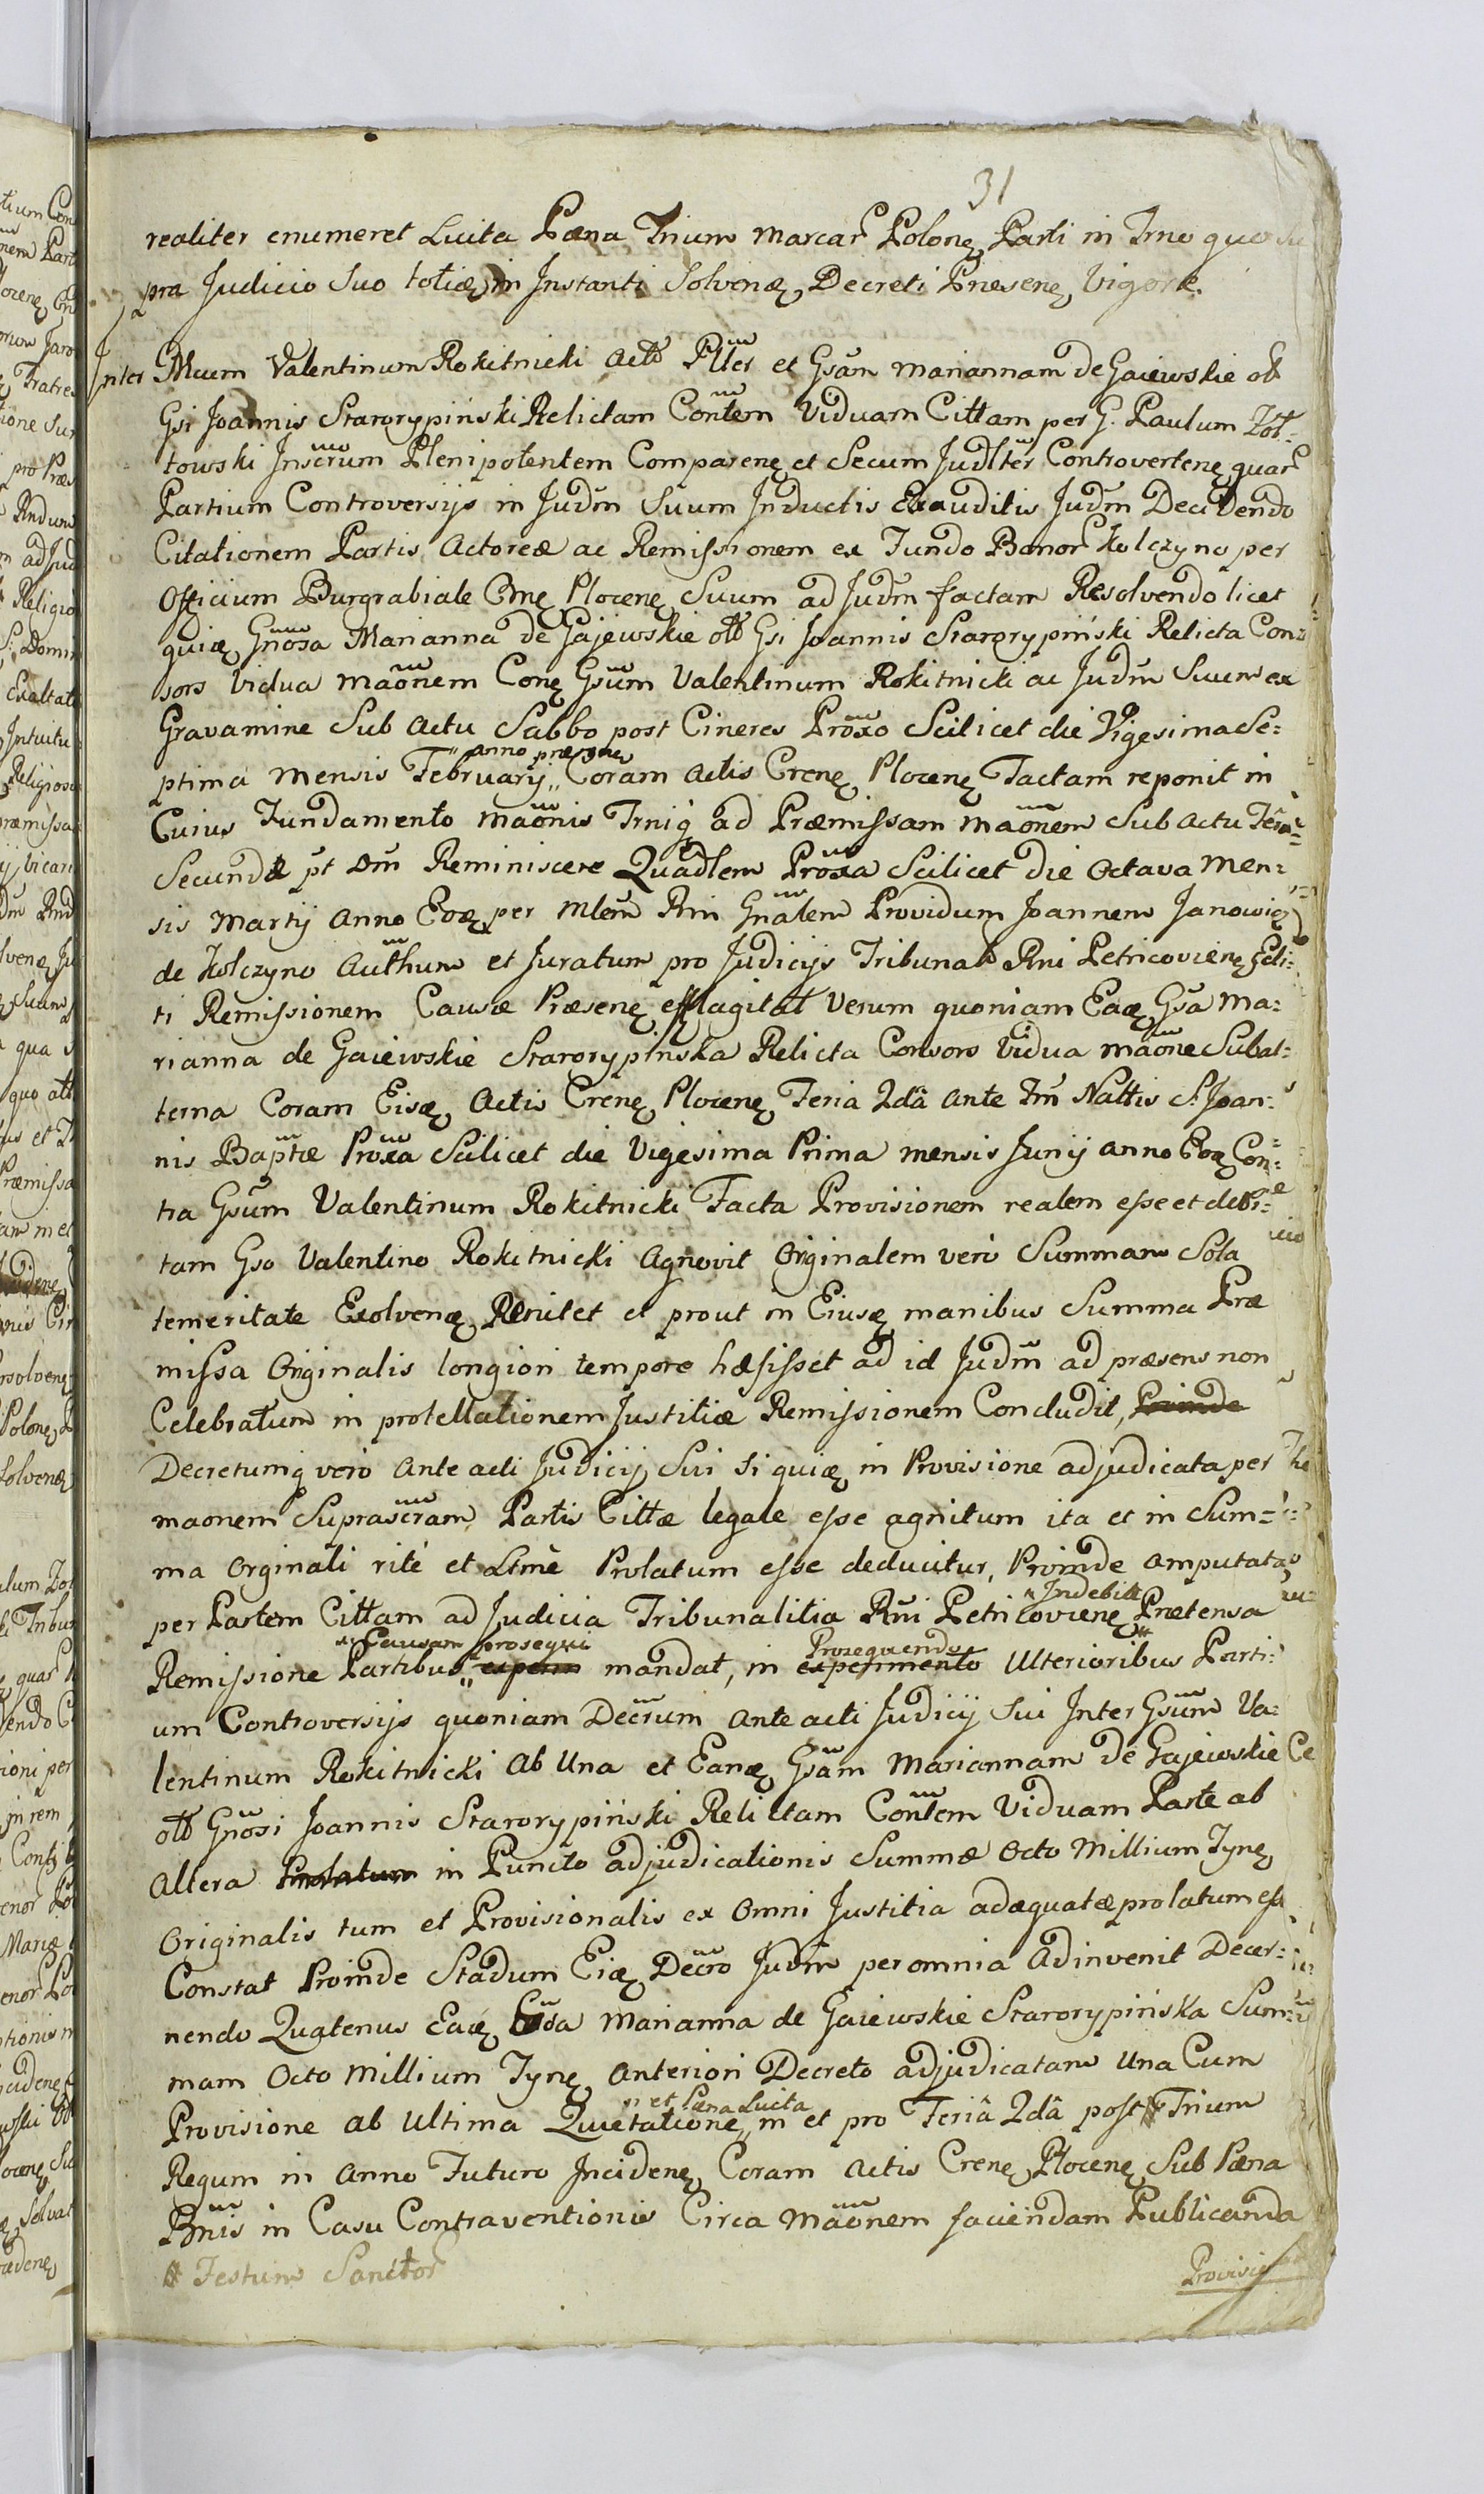 31
realiter enumeret Luita Pæna Trium marcar Polonę Parti in Trno quo Su
pra Judicio Suo totiæ in Instanti Solvenę, Decreti Pnesenę Vigore.
Inter Mcum Valentinum Rokitnicki Actō Plter et Gsam mariannam de Gaiewskie ol
Gsi Joannis Stararypiński Relictam Contem Viduam Cittam per G. Paulum Zoł-
towski Inscrum Plenipotentem Comparenę et Secum Judlter Controvertenę quar
Partium Controversijs in Judm Suum Inductis Exauditis Judm Decidendo
Citationem Partis Actoreæ ac Remissionem ex Fundo Bonor Kolczyno per
Officium Burgrabiale Crnę Plocenę Suum ad Judm factam Resolvendo licet
quię Gnosa Marianna de Gajewskie olt Gsi Joannis Stararypiński Relicta Con:
sors Vidua maõnem Conę Gsum Valentinum Rokitnicki ac Judm Suum ex
Gravamine Sub Actu Sabbo post Cineres Proxo Scilicet die Vigesima Se:
ptima mensis February „ anno præsene „ Coram Actis Crenę Plocenę Factam reponit in
Cuius Fundamento maõnis Trniq ad Præmissam maõnem Sub Actu Feria
Secunda pt Dm Reminiscere Quadlem Proxa Scilicet die Octava Men:
sis Martij Anno Eoę per Mlem Rni Gnalem Providum Joannem Janowię
de Kolczyno Authum et Juratum pro Judicijs Tribunal Rni Petricoviensę Feli:
ti Remissionem Causæ Præsenę efflagitat Verum quoniam Eaę Gsa Ma:
rianna de Gaiewskie Stararypinska Relicta Consors Vidua maõne Subal:
terna Coram Eisę Actis Crenę Plocenę Feria 2dâ ante Fm Nattis S. Joan:
nis Baptæ Proxa Scilicet die Vigesima Prima mensis Junij anno Eoę Con:
tra Gsum Valentinum Rokitnicki Facta Provisionem realem esse et debi:
tam Gso Valentino Rokitnicki Agnovit Orginalem verò Summam Sola
temeritate Exolvenę Renitet et prout in Eiusę manibus Summa Præ
missa Originalis longiori tempore hæsisset ad id Judm ad præsens non
Celebratum in protellationem Justitiæ Remissionem Concludit, Proinde
Decretumq verò Ante acti Judicij Sui si quię in Provisione adjudicata per
maonem Suprascram Partis Cittæ legale esse agnitum ita et in Sum=
ma Orginali ritè et Ltmè Prolatum esse deducitur, Proinde amputata
per Partem Cittam ad Judicia Tribunalitia Rni Petricovienę „ Indebite „ Prætensa
Remissione Partibus „ Causam prosequi „ experiri mandat, in experimento Prosequendo Ulterioribus Parti:
um Controversijs quoniam Decrum Ante acti Judicij Sui Inter Gsum Va:
lentinum Rokitnicki Ab Una et Eanę Gsam Mariannam de Gajewskie
olt Gnosi Joannis Stararypiński Relictam Contem Viduam Parte ab
Altera Prolatum in Puncto adjudicationis Summæ Octo Millium Fynę
Originalis tum et Provisionalis ex Omni Justitia adæquatæ prolatum esse
Constat Proinde Stadum Eię Decro Judm per omnia Adinvenit Decer:
nendo Quatenus Eaę Gsa Marianna de Gaiewskie Stararypińska Sum:
mam Octo Millium Fynę Anteriori Decreto adjudicatam Una Cum
Provisione ab Ultima Quietatione „ et Pæna Luita „ in et pro Feriâ 2dâ post # Trium
Regum in Anno Futuro Incidenę Coram Actis Crenę Plocenę Sub Pæna
Bnis in Casu Contraventionis Circa Maõnem faciendam Publicanda
# Festum Sanctor
Provisio